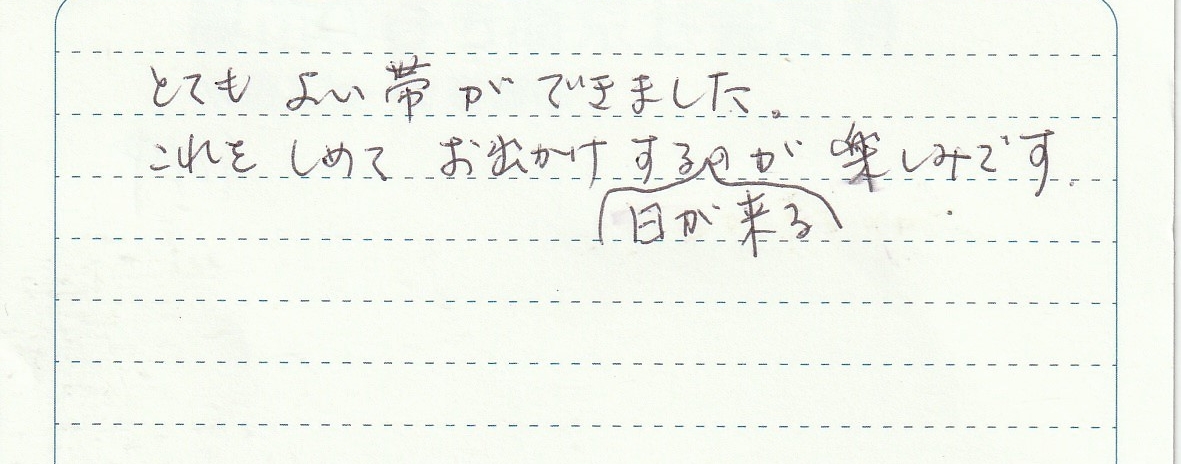 とてもよい帯ができました。
これをしめてお出かけするのが楽しみです。
日が来る